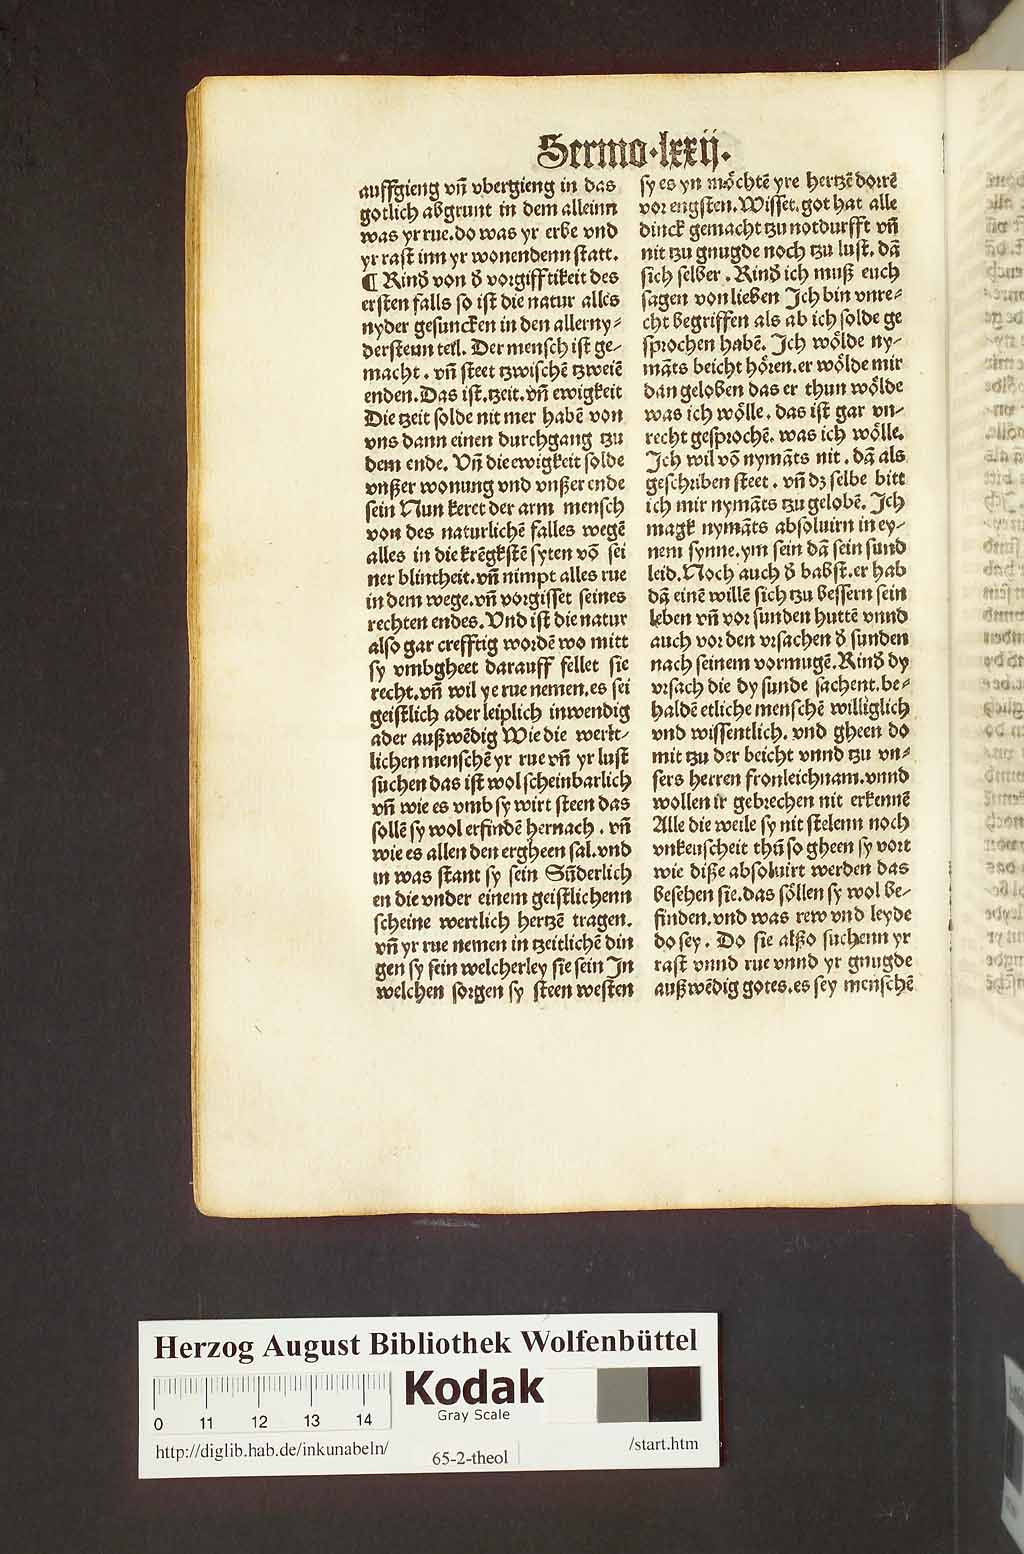 Sermo·lxxij.
auffgieng vn̄ vbergieng in das
gotlich abgrunt in dem alleinn
was yr rue. do was yr erbe vnd
yr rast inn yr wonendenn statt.
¶ Kind̕ von d̕ vorgifftikeit des
ersten falls so ist die natur alles
nyder gesuncken in den allerny-
derstenn teil. Der mensch ist ge-
macht. vn̄ steet tzwischē tzweiē
enden. Das ist. tzeit. vn̄ ewigkeit
Die tzeit solde nit mer habē von
vns dann einen durchgang tzu
dem ende. Vn̄ die ewigkeit solde
vnßer wonung vnd vnßer ende
sein Nun keret der arm mensch
von des naturlichē falles wegē
alles in die krēgkstē syten vō sei
ner blintheit. vn̄ nimpt alles rue
in dem wege. vn̄ vorgisset seines
rechten endes. Vnd ist die natur
also gar crefftig wordē wo mitt
sy vmbgheet darauff fellet sie
recht. vn̄ wil ye rue nemen. es sei
geistlich ader leiplich inwendig
ader außwēdig Wie die werlt-
lichen menschē yr rue vn̄ yr lust
suchen das ist wol scheinbarlich
vn̄ wie es vmb sy wirt steen das
sollē sy wol erfindē hernach. vn̄
wie es allen den ergheen sal. vnd
in was stant sy sein Sūderlich
en die vnder einem geistlichenn
scheine wertlich hertzē tragen.
vn̄ yr rue nemen in tzeitlichē din
gen sy sein welcherley sie sein In
welchen sorgen sy steen westen
sy es yn möchtē yre hertzē dorrē
vor engsten. Wisset. got hat alle
dinck gemacht tzu notdurfft vn̄
nit tzu gnugde noch tzu lust. dā
sich selber. Kind̕ ich muß euch
sagen von lieben Ich bin vnre-
cht begriffen als ab ich solde ge
sprochen habē. Ich wölde ny-
māts beicht hören. er wölde mir
dan geloben das er thun wölde
was ich wölle. das ist gar vn-
recht gesprochē. was ich wölle.
Ich wil vō nymāts nit. dā als
geschriben steet. vn̄ dz selbe bitt
ich mir nymāts tzu gelobē. Ich
magk nymāts absoluirn in ey-
nem synne. ym sein dā sein sund
leid. Noch auch d̕ babst. er hab
dā einē willē sich tzu bessern sein
leben vn̄ vor sunden huttē vnnd
auch vor den vrsachen d̕ sunden
nach seinem vormugē. Kind̕ dy
vrsach die dy sunde sachent. be-
haldē etliche menschē williglich
vnd wissentlich. vnd gheen do
mit tzu der beicht vnnd tzu vn-
sers herren fronleichnam. vnnd
wollen ir gebrechen nit erkennē
Alle die weile sy nit stelenn noch
vnkeuscheit thū so gheen sy vort
wie diße absoluirt werden das
besehen sie. das söllen sy wol be-
finden. vnd was rew vnd leyde
do sey. Do sie alßo suchenn yr
rast vnnd rue vnnd yr gnugde
außwēdig gotes. es sey menschē
Herzog August Bibliothek Wolfenbüttel
Kodak
Gray Scale
0 11 12 13 14
http://diglib.hab.de/inkunabeln/
65-2-theol
/start.htm